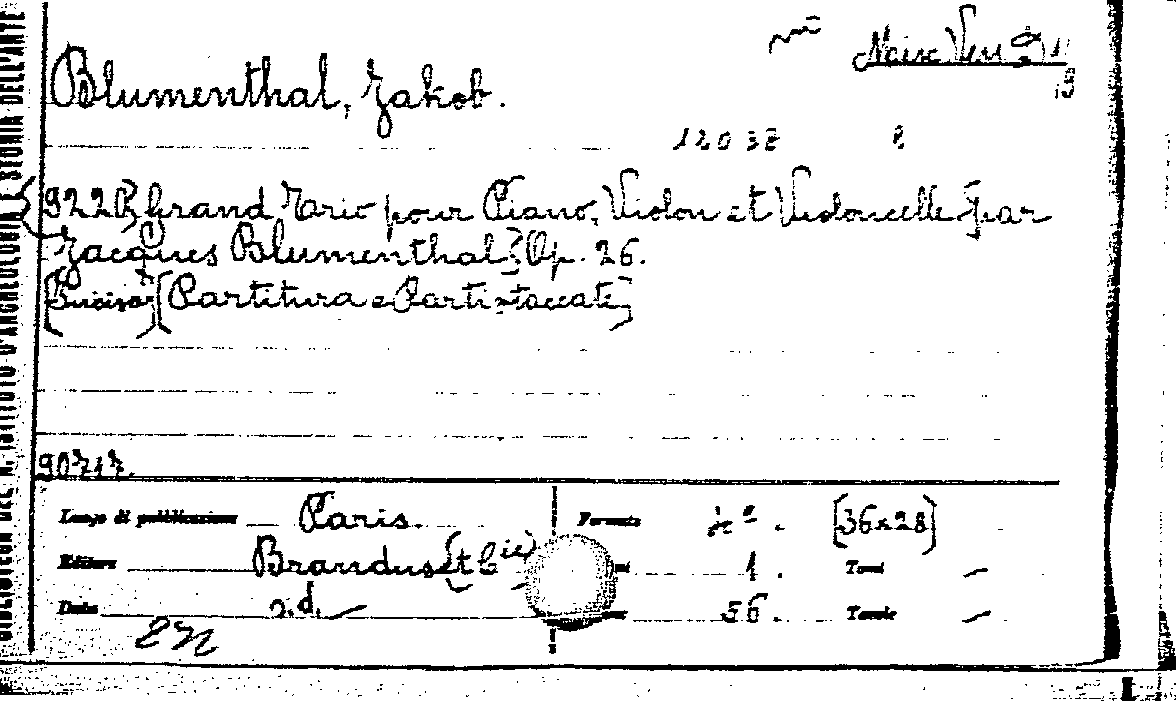 BIBLIOTECA DEL R. ISTITUTO D'ARCHEOLOGIA E STORIA DELL'ARTE
Blumenthal, Jakob.
12037
Grand Trio pour Piano, Violon et Violoncelle par
Jacques Blumenthal. Op. 26.
[Partitura e Parti staccate]
Luogo di pubblicazione Paris. Formato 4º. [36x28]
Editore Brandus [et Cie] 1. Tomi —
Data s.d. — 56. Tavole —